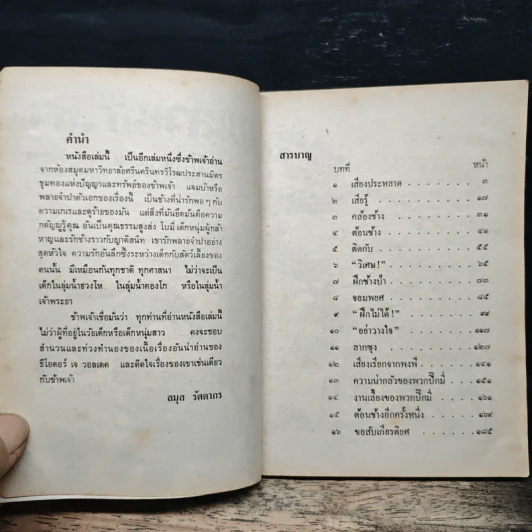 คำนำ
หนังสือเล่มนี้ เป็นอีกเล่มหนึ่งซึ่งข้าพเจ้าอ่าน
จากห้องสมุดมหาวิทยาลัยศรีนครินทรวิโรฒประสานมิตร
ขุมทองแห่งปัญญาและทรัพย์ของข้าพเจ้า แจมบ้าหรือ
พลายจำปาตัวเอกของเรื่องนี้ เป็นช้างที่น่ารักพอๆ กับ
ความเกเรและดุร้ายของมัน แต่สิ่งที่มันยึดมันคือความ
กตัญญูรู้คุณ อันเป็นคุณธรรมสูงส่ง โบมี่ เด็กหนุ่มผู้กล้า
หาญและรักช้างราวกับญาติสนิท เขารักพลายจำปาอย่าง
สุดหัวใจ ความรักอันลึกซึ้งระหว่างเด็กกับสัตว์เลี้ยงของ
ตนนั้น มีเหมือนกันทุกชาติ ทุกศาสนา ไม่ว่าจะเป็น
เด็กในลุ่มน้ำฮวงโห ในลุ่มน้ำคองโก หรือในลุ่มน้ำ
เจ้าพระยา
ข้าพเจ้าเชื่อมั่นว่า ทุกท่านที่อ่านหนังสือเล่มนี้
ไม่ว่าผู้ที่อยู่ในวัยเด็กหรือเด็กหนุ่มสาว คงจะชอบ
สำนวนและท่วงทำนองของเนื้อเรื่องอันน่าอ่านของ
ธีโอดอร์ เจ วอลเดค และติดใจเรื่องของเขาเช่นเดียว
กับข้าพเจ้า
ลมุล รัตตากร
สารบาญ
บทที่ หน้า
๑ เสียงประหลาด . . . . . . ๓
๒ เสียรู้ . . . . . . ๑๗
๓ คล้องช้าง . . . . . . ๓๑
๔ ต้อนช้าง . . . . . . ๔๕
๕ ติดกับ . . . . . . ๕๕
๖ "วิเศษ!" . . . . . . ๖๕
๗ ฝึกช้างป่า . . . . . . ๗๓
๘ จอมพยศ . . . . . . ๘๕
๙ "ฝึกไม่ได้!" . . . . . . ๙๗
๑๐ "อย่าวางใจ" . . . . . . ๑๑๗
๑๑ ลากซุง . . . . . . ๑๒๗
๑๒ เสียงเรียกจากพงพี . . . . . . ๑๔๑
๑๓ ความน่ากลัวของพวกปิ๊กมี่ . . . . ๑๕๑
๑๔ งานเลี้ยงของพวกปิ๊กมี่ . . . . . ๑๖๑
๑๕ ต้อนช้างอีกครั้งหนึ่ง . . . . . ๑๖๙
๑๖ ขอสับเกียรติยศ . . . . . . ๑๘๕